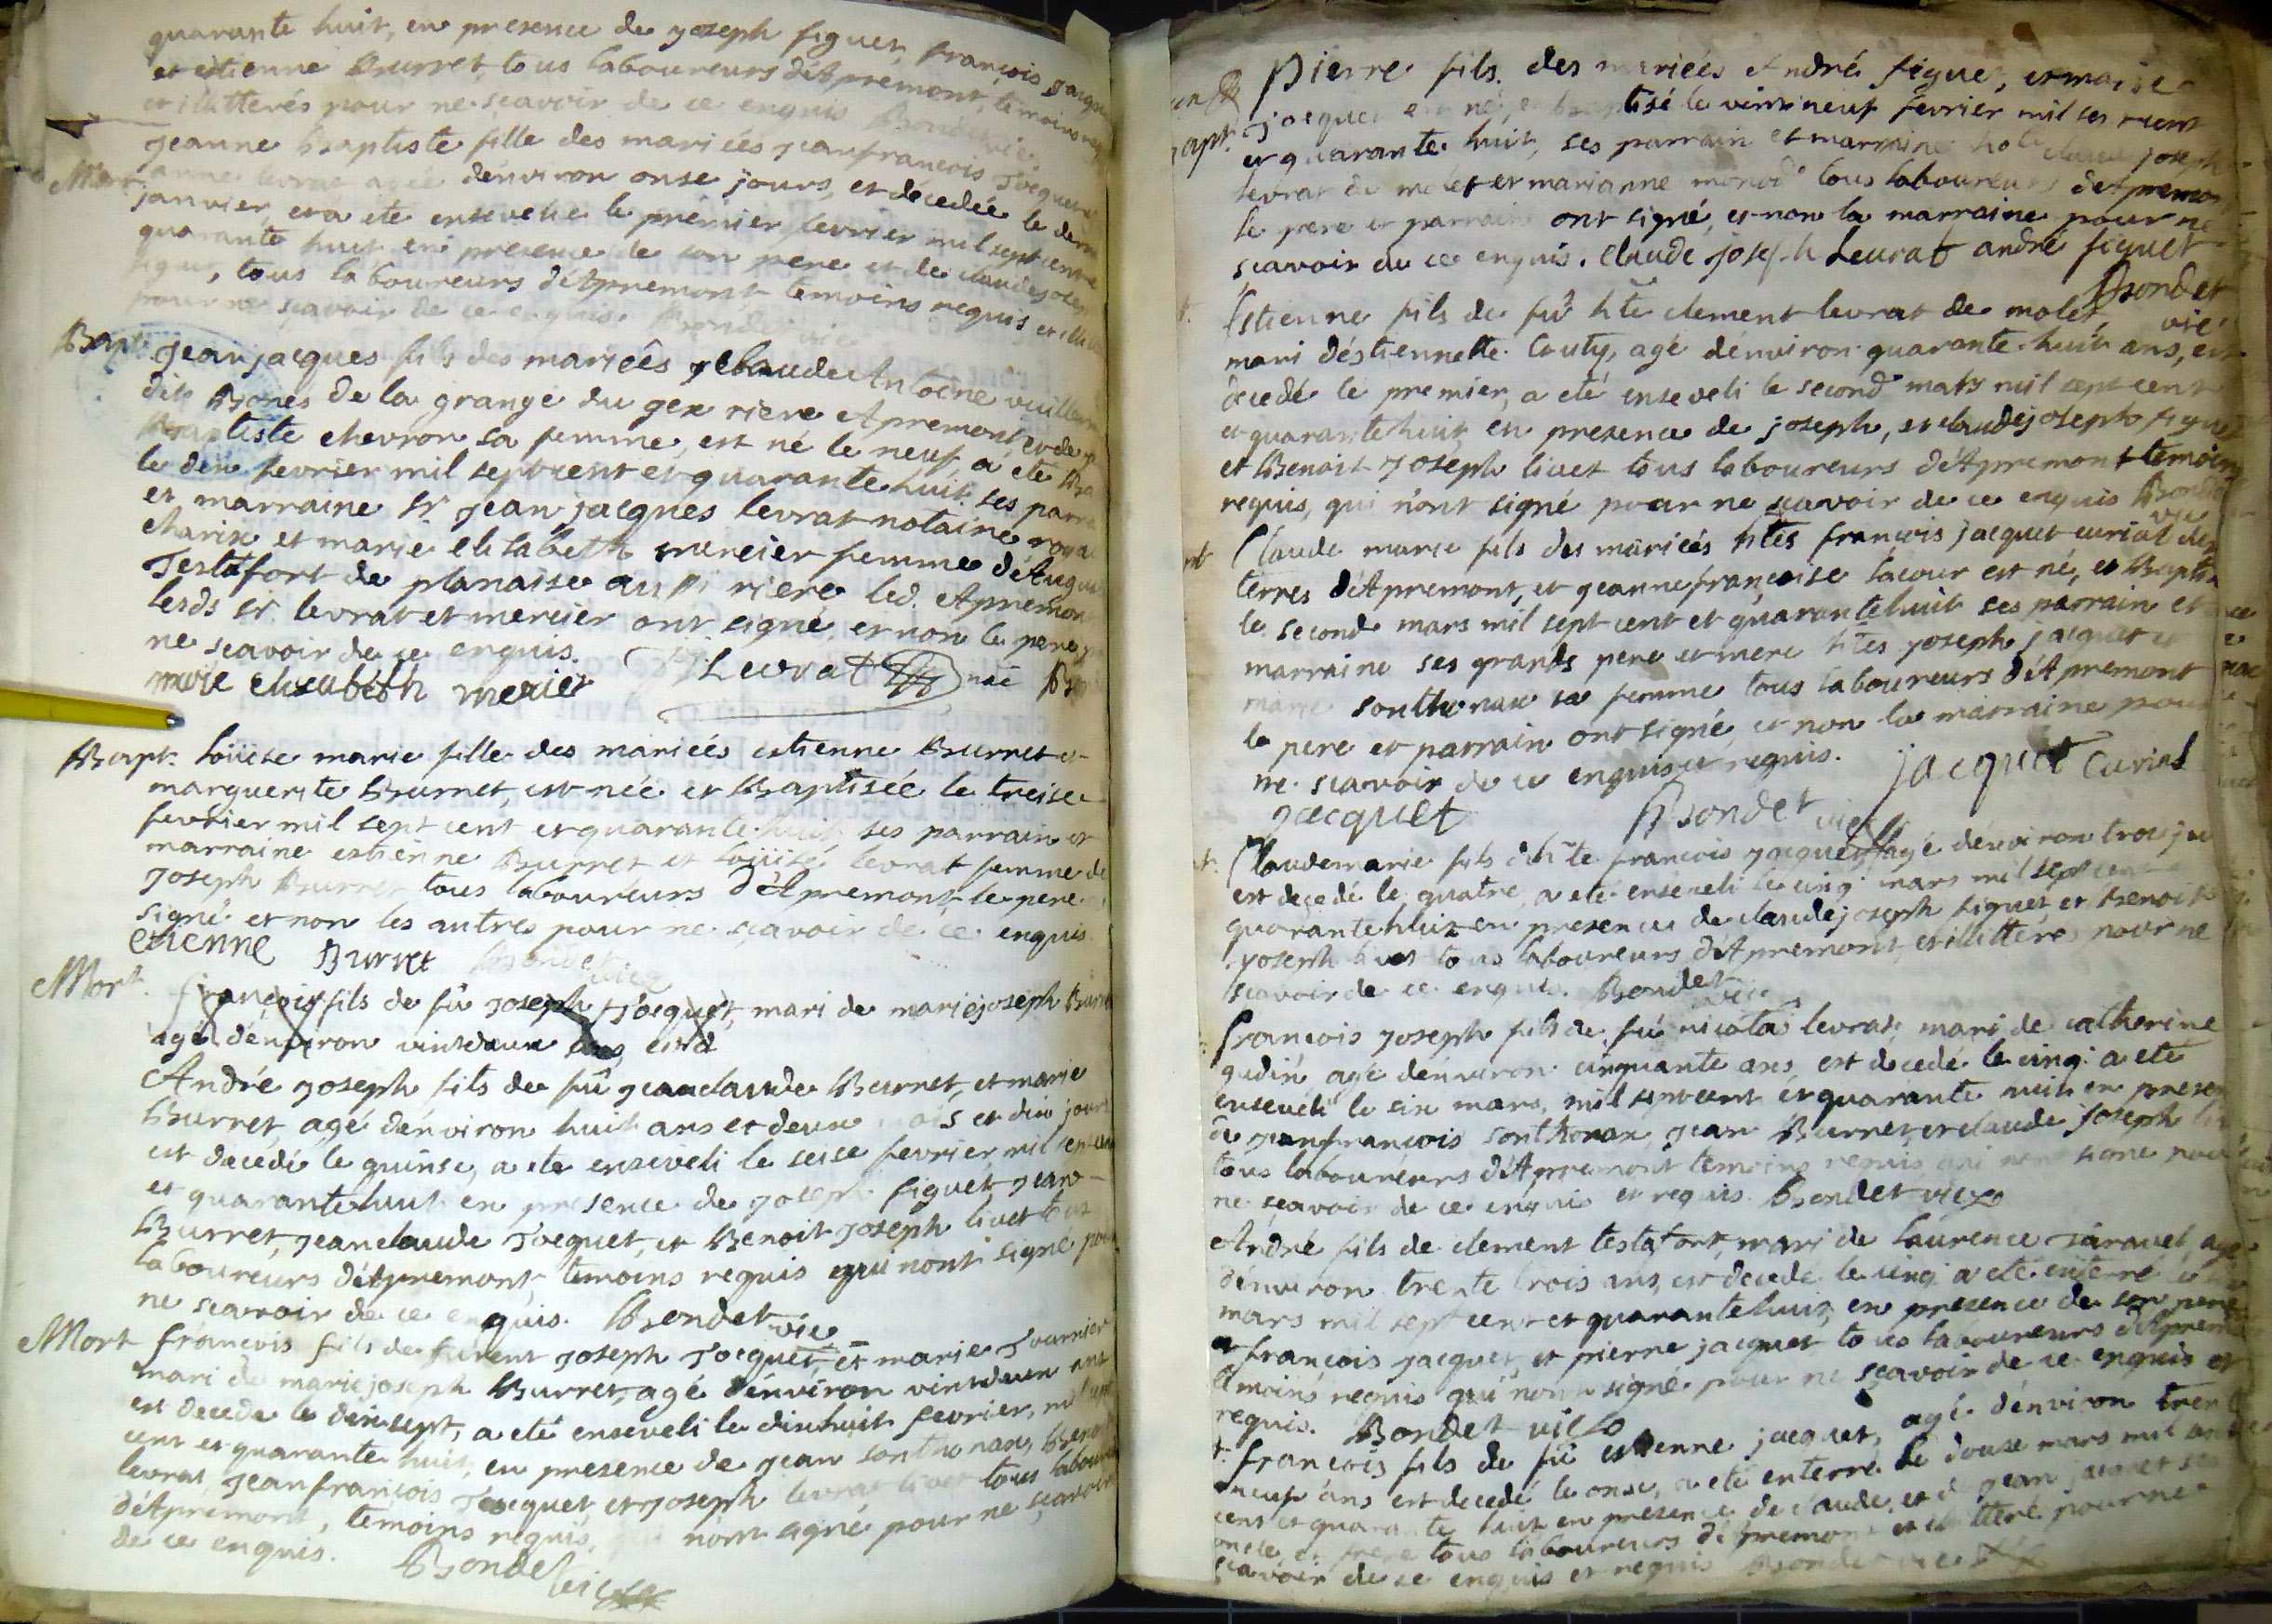 quarante huit, en presence de joseph figuet, françois Jacquet
et estienne Burret, tous laboureurs d'Apremont, temoins req
et illitterés pour ne scavoir de ce enquis Bondet vic
Mort
jeanne Baptiste fille des mariées jeanfrancois Jocquet
anne levrat agée d'environ onse jours, et décedée le dern
janvier, et a ete ensevelie le prémier fevrier mil sept cent
quarante huit en presence de son pere et de claudejoseph
figuet, tous laboureurs d'Apremont temoins requis et illit
pour ne scavoir de ce enquis. Bondet vic
Bapt. jeanjacques fils des mariées claude Antoene vuillerm
dit Bones de la grange du gex riere Apremont, et de j
Baptiste chevron sa femme, est né le neuf, a ete Ba
le dix fevrier mil sept cent et quarante huit ses parra
et marraine sr. jean jacques levrat notaine roya
charix et marie elisabeth mercier femme d'Augu
Testafort de planaise aussi riere led. Apremon
lesds sr. levrat et mercier ont signé, et non le pere p
ne scavoir de ce enquis.
marie elisabeth merier Levrat nre B
Bapt. Loüise marie fille des mariées estienne Burret et
marguerite Burret, est née et Baptisée le treise
fevrier mil sept cent et quarante huit ses parrain et
marraine estienne Burret et loüise levrat femme de
joseph Burret tous laboureurs d'Apremont, le pere
signé et non les autres pour ne scavoir de ce enquis.
etienne Burret Bondet vic
Mort. françois fils de fû joseph Jocquet, mari de mariejoseph Burret
agé d'environ vintdeux ans, est d
André joseph fils de fû jeanclaude Burret, et marie
Burret, agé d'environ huit ans et deux mois et dix jours
est decedé le quinse, a ete enseveli le seise fevrier mil sept cent
et quarantehuit en presence de joseph figuet, jean
Burret, jeanclaude Jocquet, et Benoit joseph livet tous
laboureurs d'Apremont, temoins requis qui n'ont signé pour
ne scavoir de ce enquis. Bondet vic
Mort françois fils de furent joseph Jocquet, et marie Tournier
mari de mariejoseph Burret, agé d'environ vintdeux ans
est decedé le dixsept, a eté enseveli le dixhuit fevrier, mil sept
cent et quarante huit, en presence de jean sonthonax, Benoit
levrat, jeanfrancois Jocquet, et joseph levrat livet tous laboure
d'Apremont, temoins requis, qui n'ont signé pour ne scavoir
de ce enquis. Bondet vic
Pierre fils des mariées André figuet, et marie
Jocquet est né, et baptisé le vintneuf fevrier mil sept cent
et quarante huit, ses parrain et marraine hote claude joseph
levrat du molet et marianne monod tous laboureurs d'Apremon
le pere et parrain ont signé, et non la marraine pour ne
scavoir de ce enquis. Claude joseph Leurat andré figuet
Bondet vic
Estienne fils de fû hte clement levrat de molet,
mari d'éstiennette Couty, agé d'environ quarante huit ans, est
decedé le premier, a eté enseveli le second mars mil sept cent
et quarantehuit en presence de joseph, et claudejoseph figuet
et Benoit joseph livet tous laboureurs d'Apremont temoins
requis, qui n'ont signé pour ne scavoir de ce enquis Bondet vic
Claude marie fils des mariées htes françois jacquet curial des
terres d'Apremont, et jeannefrançoise lacour est né, et Baptisé
le second mars mil sept cent et quarantehuit ses parrain et
marraine ses grands pere et mere htes joseph jacquet et
marie sonthonax sa femme tous laboureurs d'Apremont
le pere et parrain ont signé, et non la marraine pour
ne scavoir de ce enquis et requis. jacquet Curial
jacquet Bondet vic
Claudemarie fils d'hte françois jacquet, agé d'environ trois jou
est decedé le quatre, a eté enseveli le cinq mars mil sept cent
quarantehuit en presence de claudejoseph figuet, et Benoit
joseph livet tous laboureurs d'Apremont, et illitterés pour ne
scavoir de ce enquis. Bondet vic
françois joseph fils de fû nicolas levrat, mari de catherine
gudin agé d'environ cinquante ans, est decedé le cinq. a eté
enseveli le six mars, mil sept cent et quarante huit en presen
de jeanfrançois sonthonax, jean Burret, et claude joseph
tous laboureurs d'Apremont temoins requis, qui n'ont signé pour
ne scavoir de ce enquis et requis. Bondet vic
André fils de clement testafort, mari de laurence jaravel, agé
d'environ trente trois ans, est decedé le cinq a eté enterré
mars mil sept cent et quarantehuit, en presence de son pere
françois jacquet, et pierre jacquet tous laboureurs d'Apremon
temoins requis qui n'ont signé pour ne scavoir de ce enquis et
requis. Bondet vic
françois fils de fû estienne jacquet, agé d'environ trente
neuf ans est decedé le onse, a eté enterré le douse mars mil sept
cent et quarante huit en presence de claude, et de jean jacquet ses
oncle et frere tous laboureurs d'Apremont et illitteré pour ne
scavoir de ce enquis et requis Bondet vic